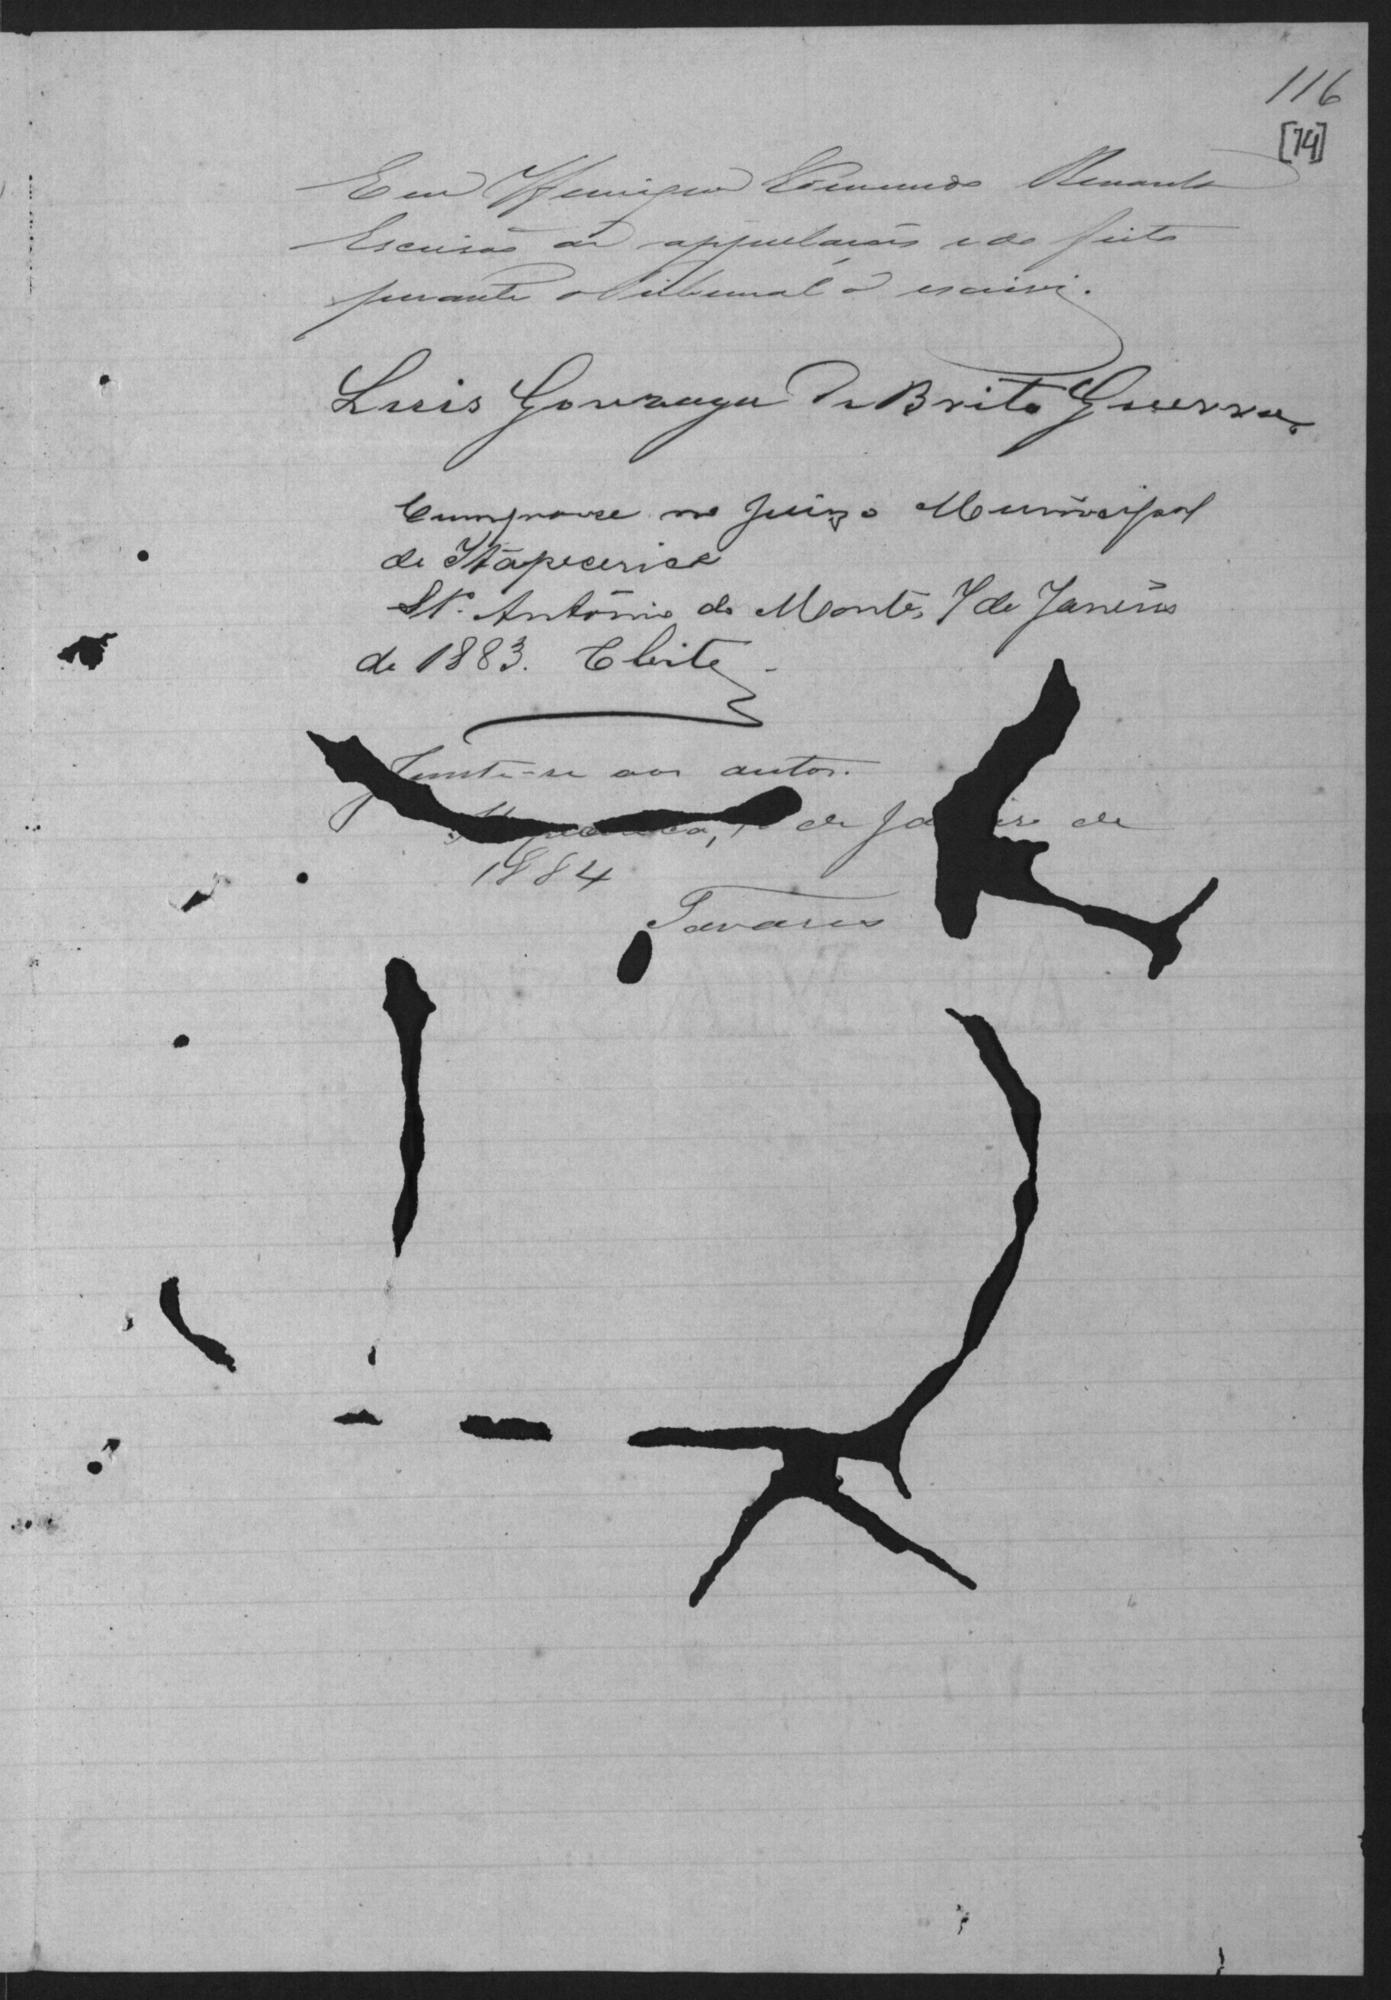 116
[74]
Eu Henrique Renault
Escrivão de appellações e do feito
perante o Tribunal o escrivi.
Luis Gonzaga de Brito Guerra
Cumpra-se no Juizo Municipal
de Itapecerica
Stº. Antônio do Monte, 7 de Janeiro
de 1883. C Leite
Junte-se aos autos.
de Ja iro de
1884
Tavares